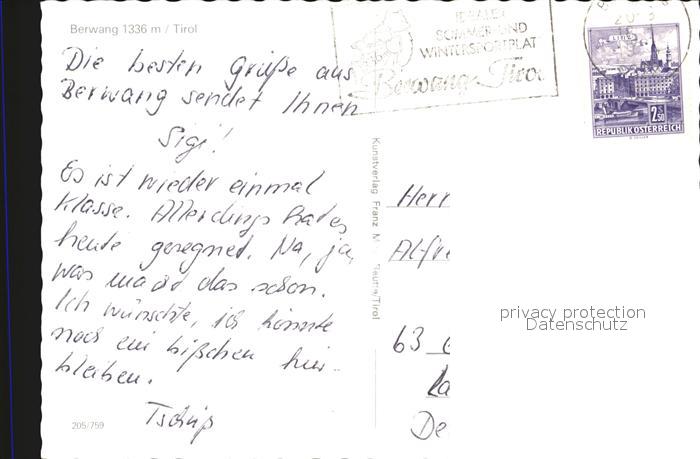 Berwang 1336 m / Tirol
Die besten Grüße aus
Berwang sendet Ihnen
Sigi!
Es ist wieder einmal
Klasse. Allerdings hat es
heute geregnet. Na, ja,
was macht das schon.
Ich wünschte, ich könnte
noch ein bißchen hier
bleiben.
Tschüß
205/759
Kunstverlag Franz
Reutte/Tirol
IDEALER
SOMMER-UND
WINTERSPORTPLATZ
Berwang-Tirol
LINZ
2 S 50
REPUBLIK ÖSTERREICH
Herr
Alfre
63
De
privacy protection
Datenschutz